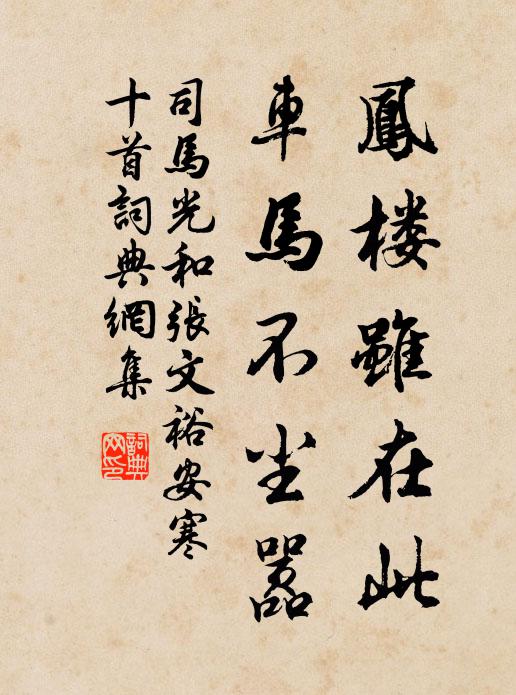 鳳楼雖在此
車馬不尘嚣
司馬光和張文裕安寒
十首詞典網集
詞典网印